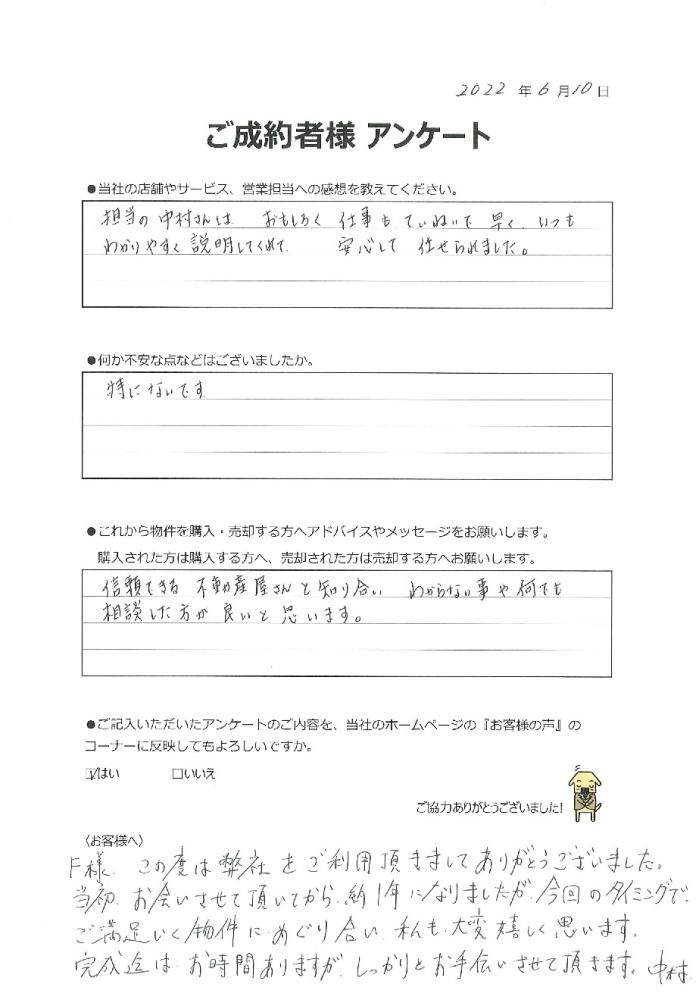 2022年6月10日
ご成約者様 アンケート
●当社の店舗やサービス、営業担当への感想を教えてください。
担当の中村さんは おもしろく 仕事も ていねいで 早く、いつも
わかりやすく説明してくれて、 安心して 任せられました。
●何か不安な点などはございましたか。
特にないです
●これから物件を購入・売却する方へアドバイスやメッセージをお願いします。
購入された方は購入する方へ、売却された方は売却する方へお願いします。
信頼できる 不動産屋さんと知り合い わからない事や何でも
相談した方が良いと思います。
●ご記入いただいたアンケートのご内容を、当社のホームページの『お客様の声』の
コーナーに反映してもよろしいですか。
☑はい □いいえ
ご協力ありがとうございました!
〈お客様へ〉
F様、この度は弊社をご利用頂きましてありがとうございました。
当初、お会いさせて頂いてから、約1年になりましたが、今回のタイミングで、
ご満足いく物件に、めぐり合い、私も、大変嬉しく思います。
完成迄は、お時間ありますが、しっかりとお手伝いさせて頂きます。中村